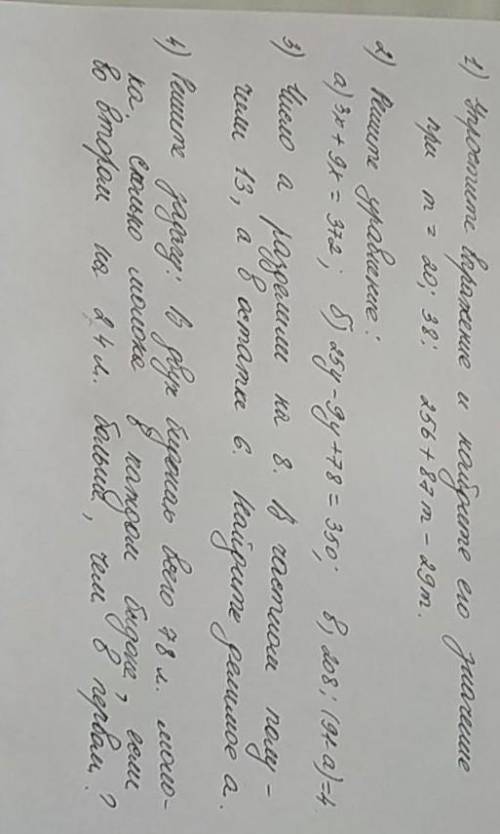 1) Упростите выражение и найдите его значение
при m = 20; 38; 256 + 87m - 29m.
2) Решите уравнение:
а) 3x + 9x = 372; б) 25y - 9y + 78 = 350; в) 208 : (9+a)=4
3) Число а разделили на 8. В частном полу-
чили 13, а в остатке 6. Найдите делимое а.
4) Решите задачу: В двух бидонах всего 78 л. моло-
ка. Сколько молока в каждом бидоне, если
во втором на 24 л. больше, чем в первом.?